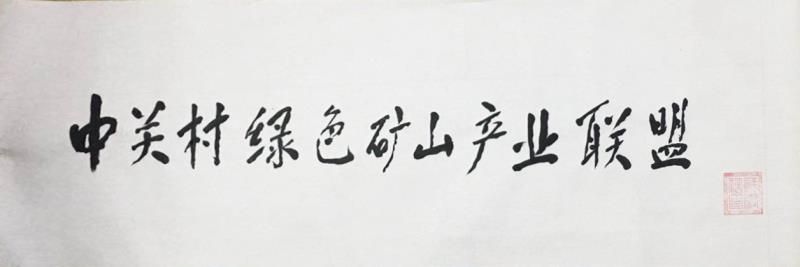 中关村绿色矿山产业联盟